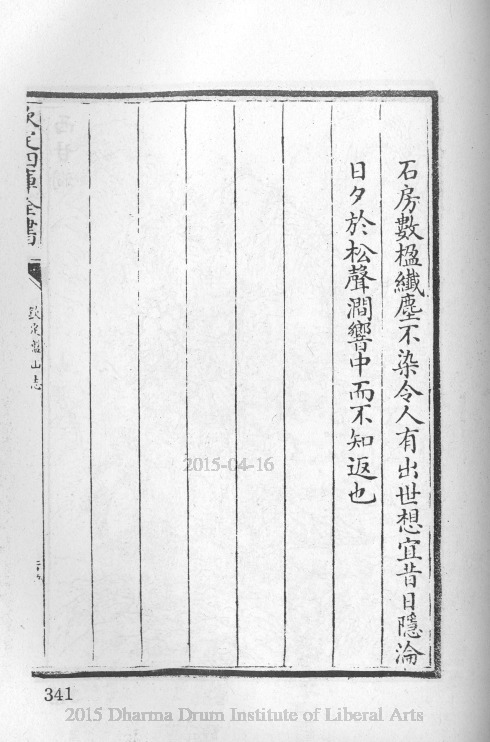 石房數楹纖塵不染令人有出世想宜昔日隱淪
日夕於松聲澗響中而不知返也
欽定四庫全書
欽定盤山志
341
2015-04-16
2015 Dharma Drum Institute of Liberal Arts